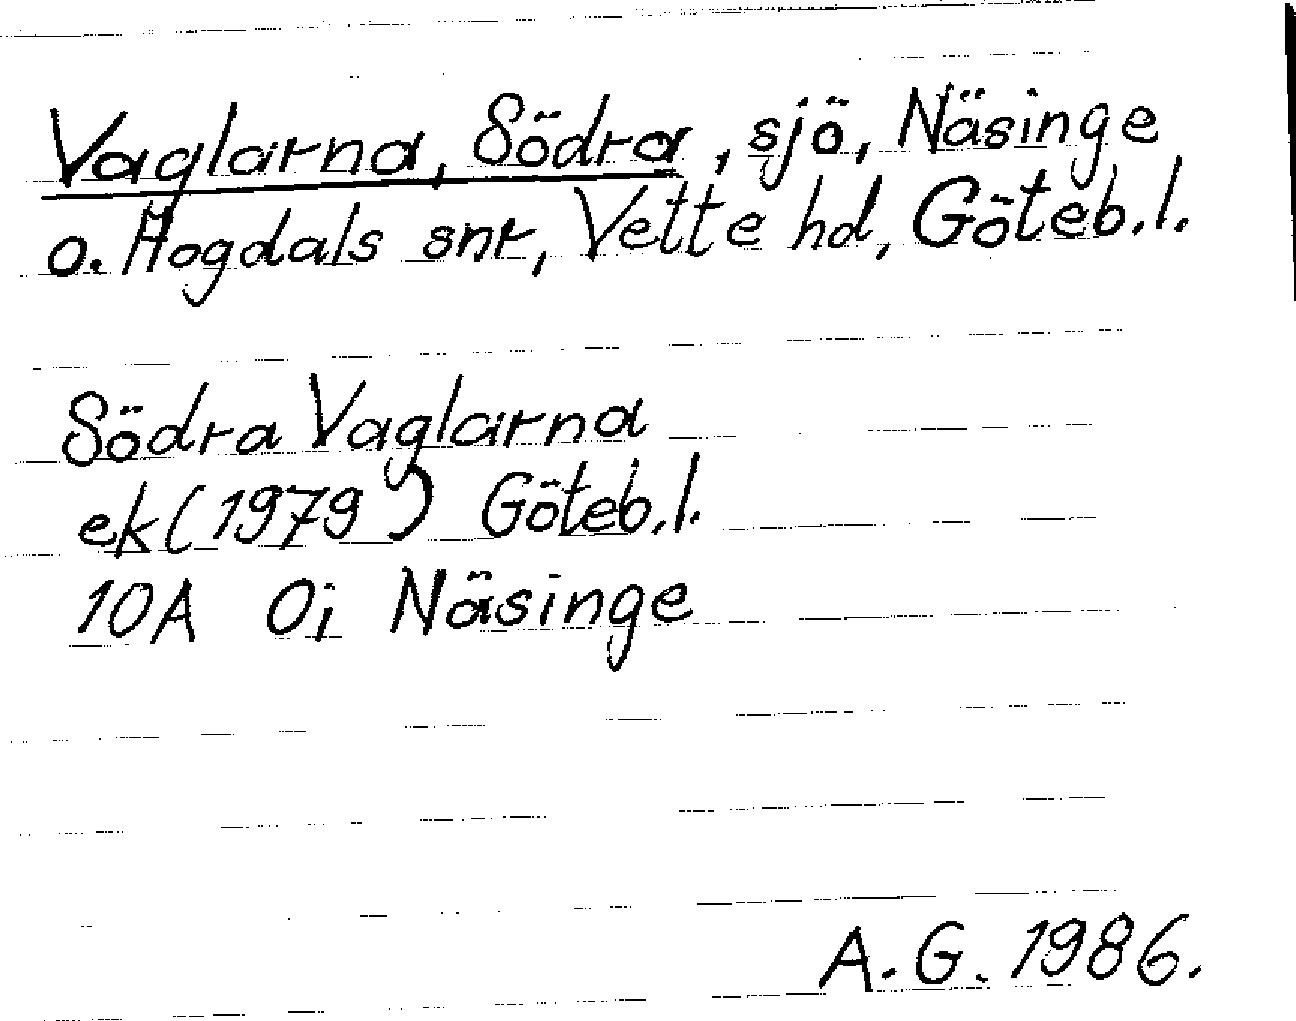 Vaglarna, Södra, sjö, Näsinge
o. Hogdals snr, Vette hd, Göteb.l.
Södra Vaglarna
ek(1979) Göteb.l.
10A 0i Näsinge
A.G. 1986.